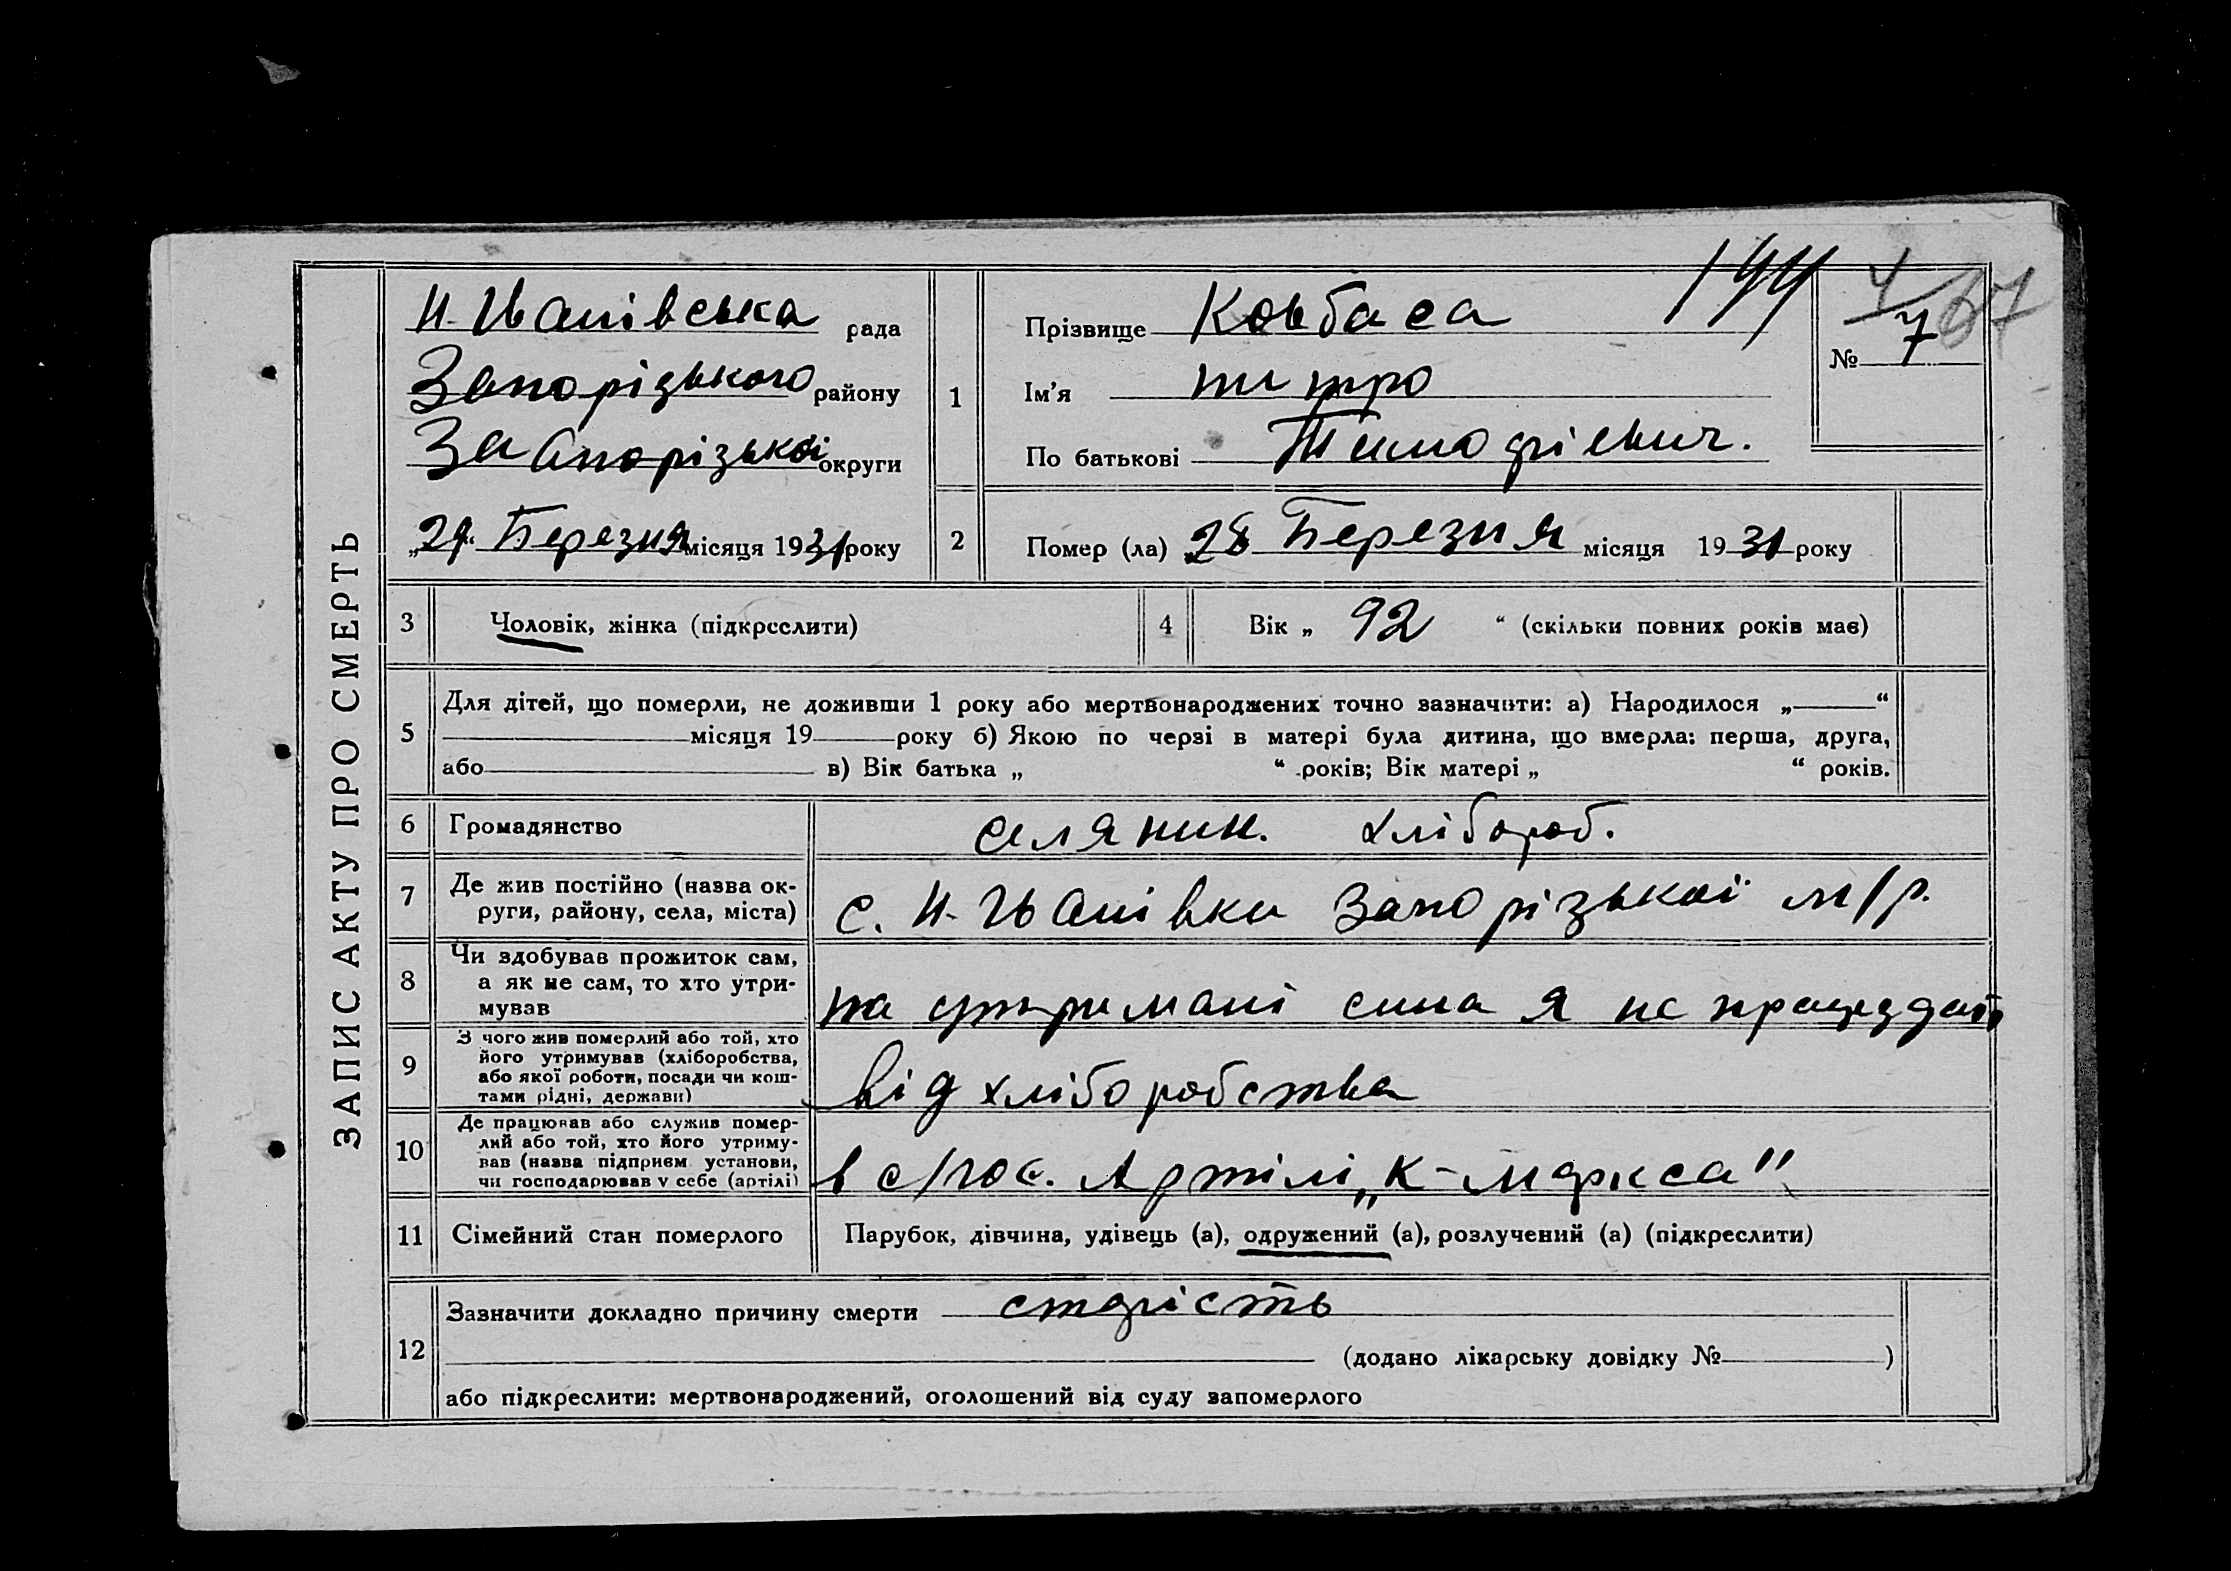 ЗАПИС АКТУ ПРО СМЕРТЬ
Н-Іванівська рада
Запорізького району
Заапорізької округи
„29“ Березня місяця 1931 року
1 Прізвище Ковбаса 144
Ім’я питро
По батькові Тимофієвич.
№ 7
4
67
2 Помер (ла) 28 Березня місяця 1931 року
3 Чоловік, жінка (підкреслити)
4 Вік „ 92 “ (скільки повних років має)
5 Для дітей, що померли, не доживши 1 року або мертвонароджених точно зазначити: а) Народилося „ “
місяця 19 року б) Якою по черзі в матері була дитина, що вмерла: перша, друга,
або в) Вік батька „ “ років; Вік матері „ “ років.
6 Громадянство селянин. хлібороб.
7 Де жив постійно (назва ок-
руги, району, села, міста)
с. Н-Іванівки Запорізької м/р.
8 Чи здобував прожиток сам,
а як не сам, то хто утри-
мував
на утримані сина я не працездат
9 З чого жив померлий або той, хто
його утримував (хліборобства,
або якої роботи, посади чи кош-
тами рідні, держави)
від хліборобства
10 Де працював або служив помер-
лий або той, хто його утриму-
вав (назва підприєм. установи,
чи господарював у себе (артілі)
в с/гос. Артілі „К-Маркса"
11 Сімейний стан померлого Парубок, дівчина, удівець (а), одружений (а), розлучений (а) (підкреслити)
12 Зазначити докладно причину смерти старість
(додано лікарську довідку № )
або підкреслити: мертвонароджений, оголошений від суду запомерлого